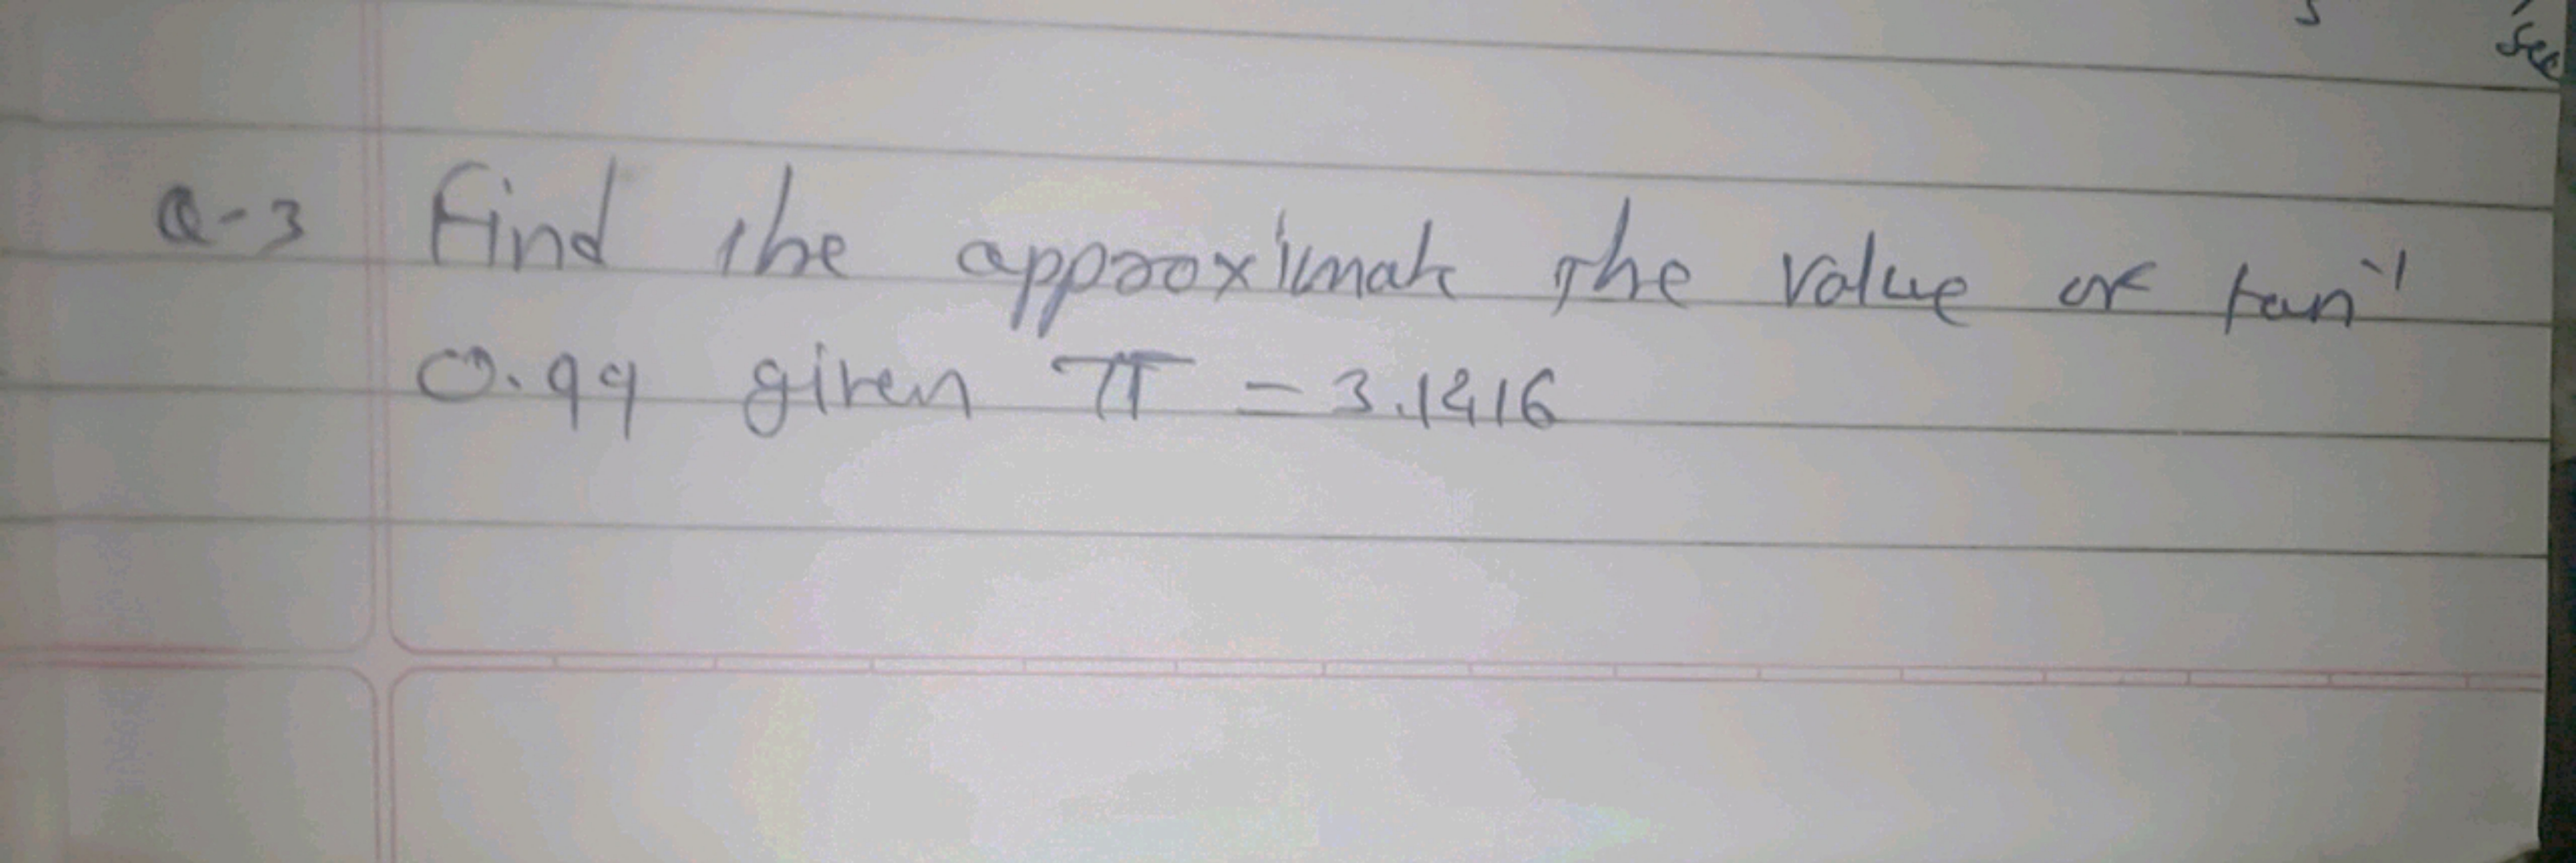 sec
Q-3 Find the approximate the value of tan⁻¹
0.99 given π = 3.1416